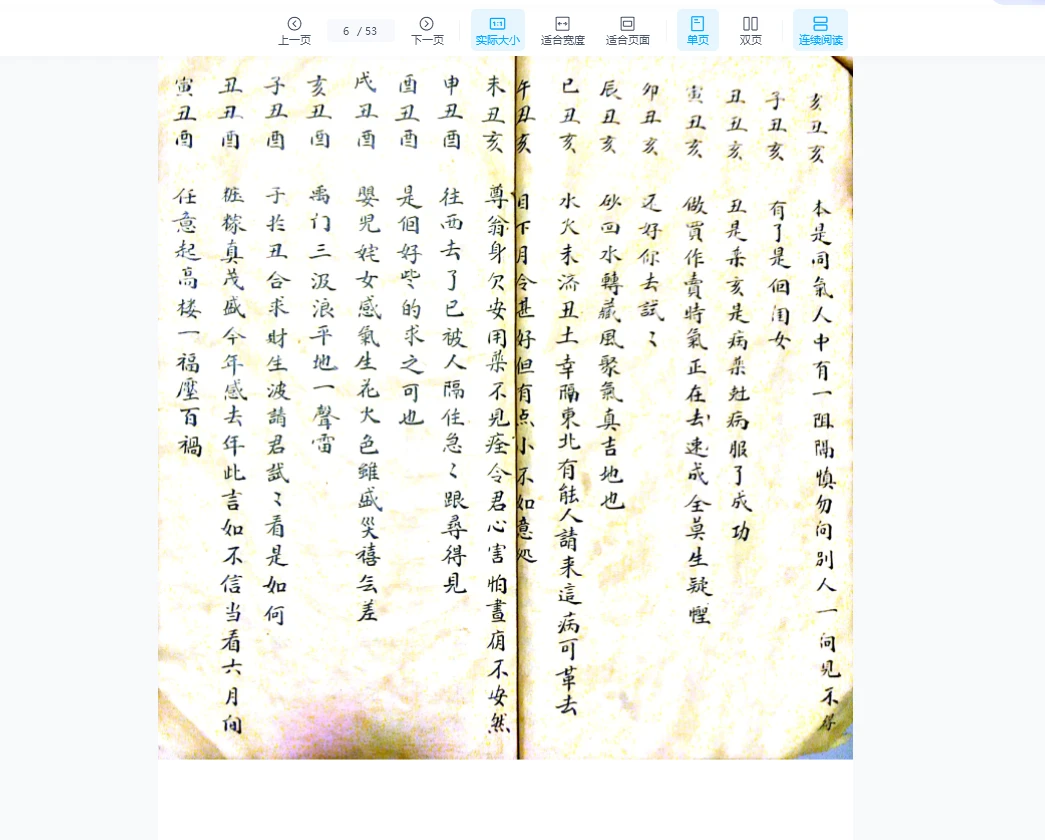 上一页 6 / 53 下一页 实际大小 适合宽度 适合页面 单页 双页 连续阅读
亥丑亥 本是同氣人中有一阻隔慎勿问別人一问見不得
子丑亥 有了是個闺女
丑丑亥 丑是药亥是病药尅病服了成功
寅丑亥 做買作賣特氣正在去速成全莫生疑慳
卯丑亥 还好你去試〻
辰丑亥 砂回水轉藏風聚氣真吉地也
巳丑亥 水火未济丑土幸隔東北有能人請来這病可革去
午丑亥 目下月令甚好但有点小不如意処
未丑亥 尊翁身欠安用藥不見痊令君心害怕晝夜不安然
申丑酉 往西去了已被人隔住急〻跟尋得見
酉丑酉 是個好些的求之可也
戌丑酉 嬰児姹女感氣生花火色雖盛災禧无差
亥丑酉 禹门三汲浪平地一聲雷
子丑酉 子扵丑合求財生波請君試〻看是如何
丑丑酉 粧稼真茂盛今年感去年此言如不信当看六月间
寅丑酉 任意起高楼一福壓百禍